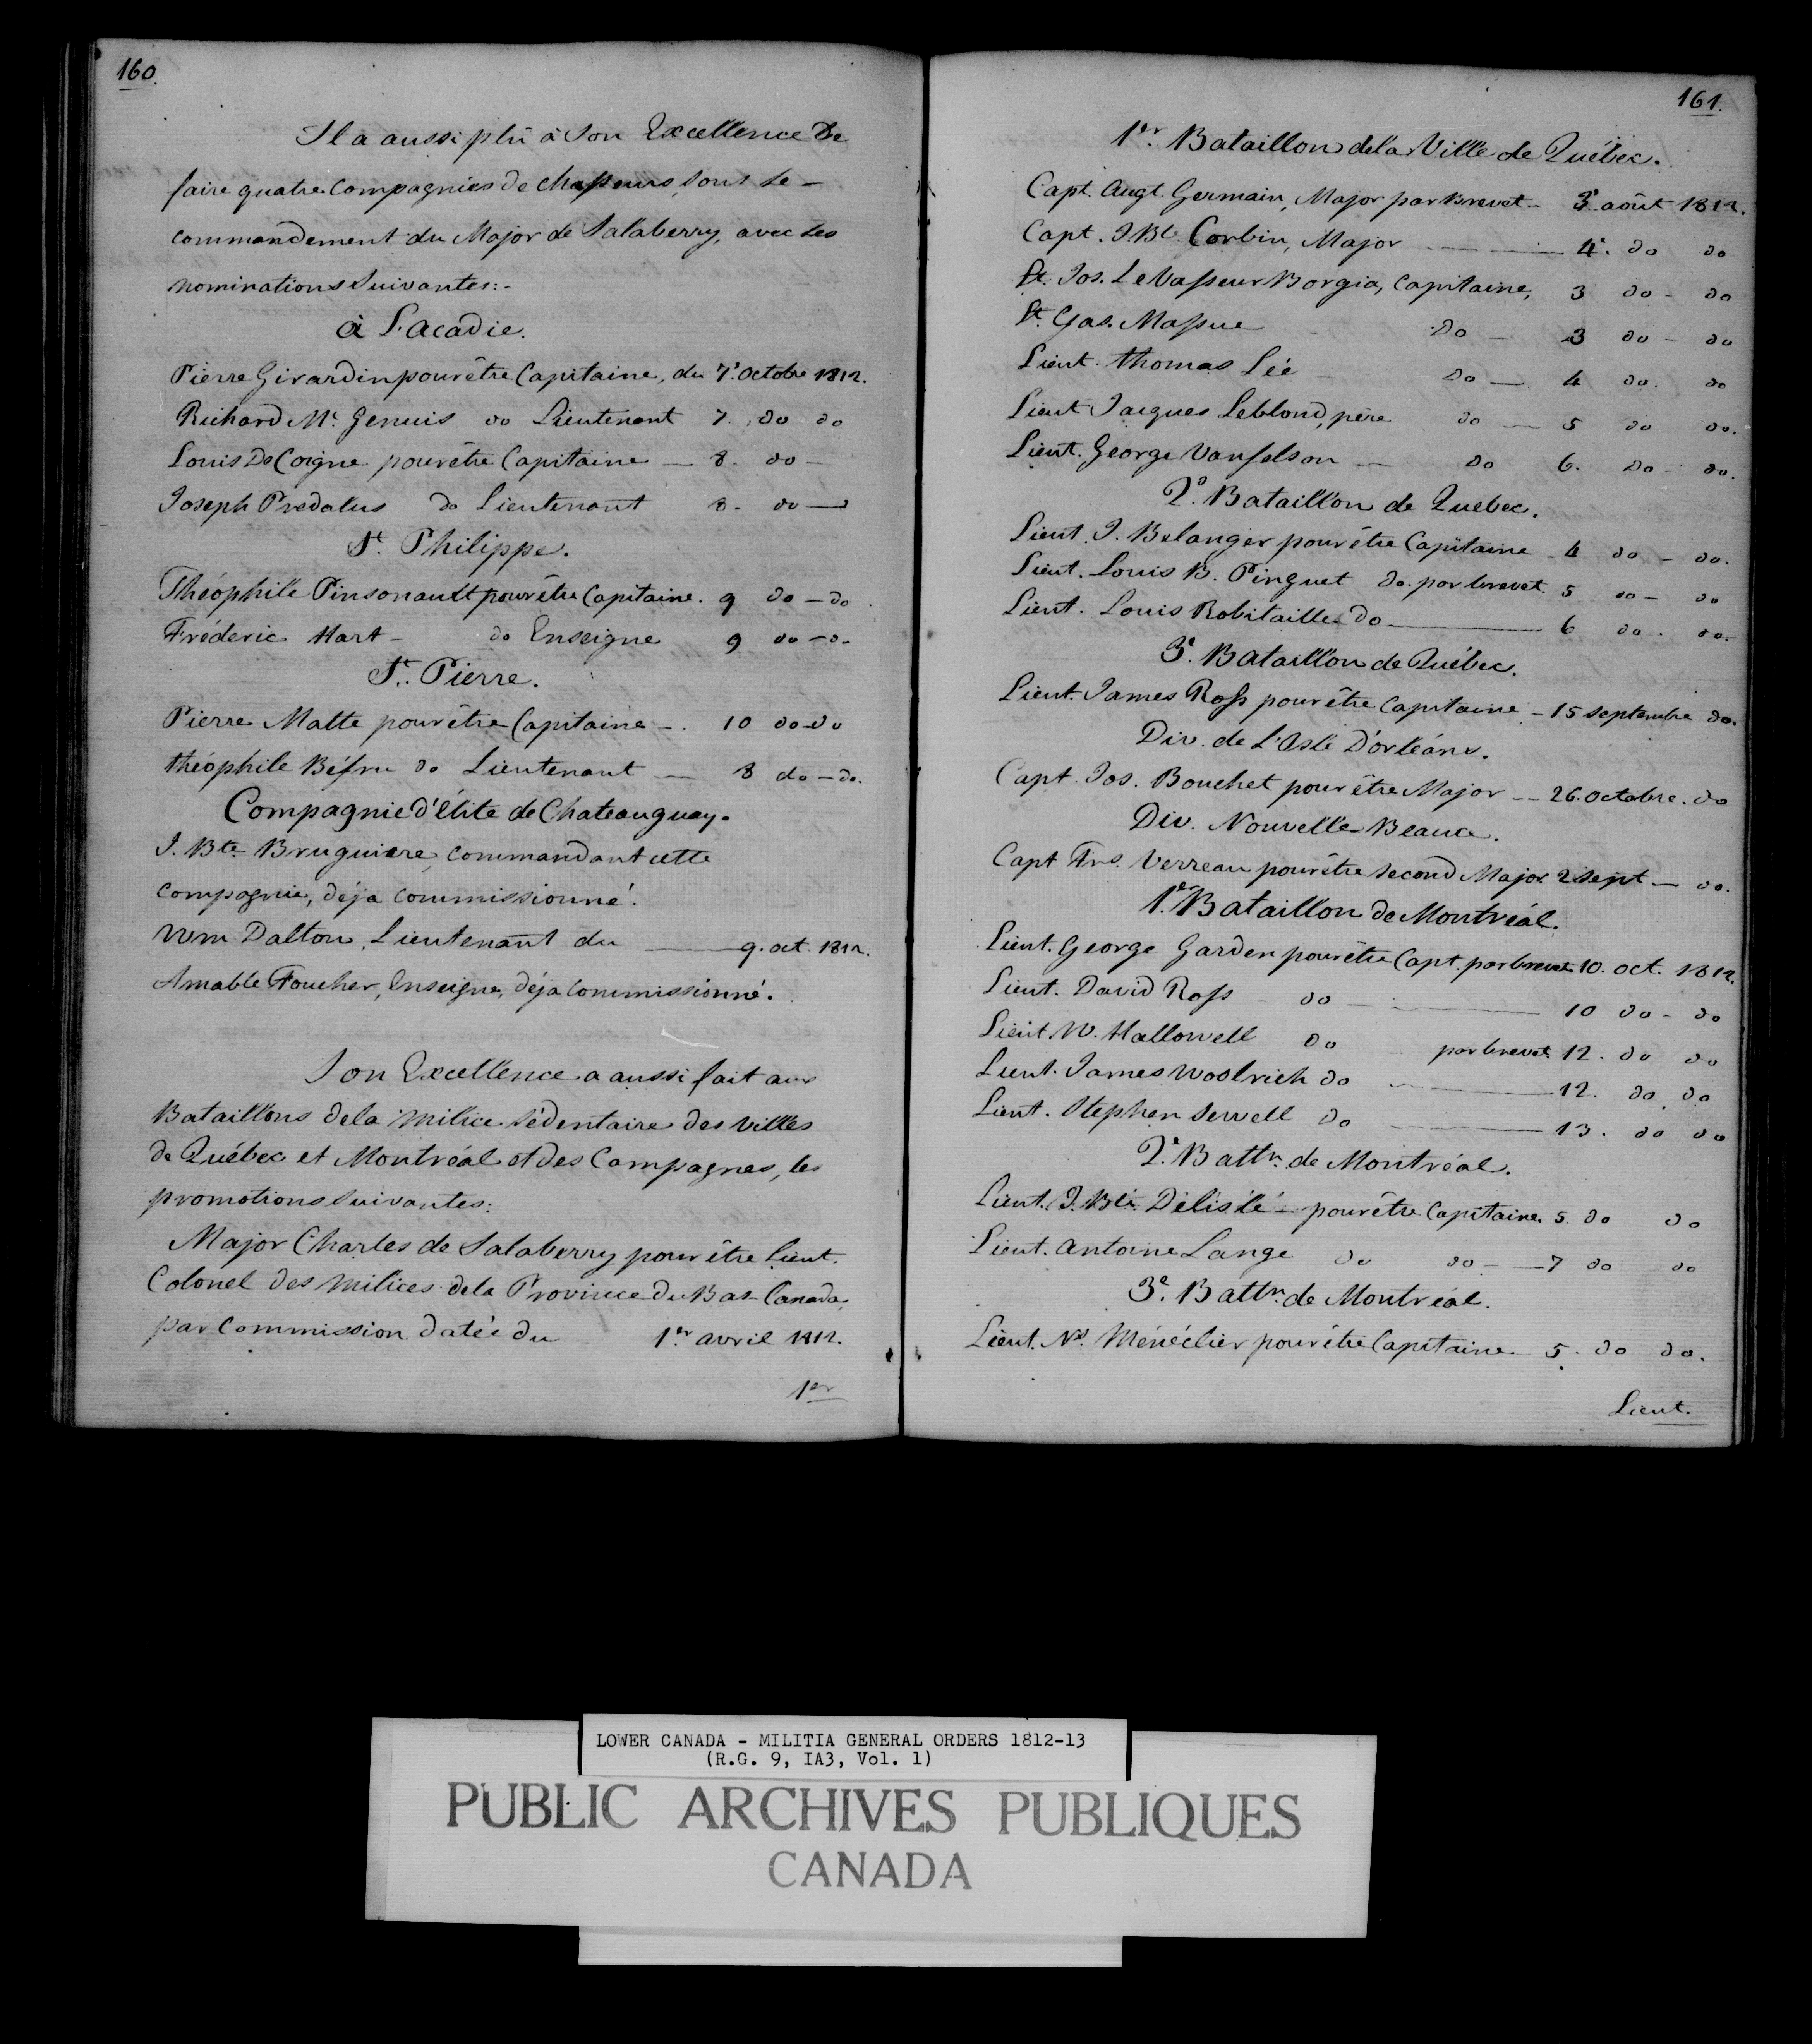 160.
Il a aussi plû à Son Excellence De
faire quatre Compagnies de Chasseurs, Sous le -
commandement du Major de Salaberry, avec les
nominations Suivantes:-
à L'acadie.
Pierre Girardin pour être Capitaine, du 7e. Octobre 1812.
Richard Mc. Genuis do Lieutenant 7. do do
Louis De Coigne pour être Capitaine — 8. do —
Joseph Predalus do Lieutenant 8. do —
St. Philippe.
Théophile Pinsonault pour être Capitaine. 9 do — do
Fréderic Hart - do Enseigne 9 do - do
St. Pierre.
Pierre Matte pour être Capitaine - . 10 do - do
théophile Béfru do Lieutenant — 8 do - do.
Compagnie d'élite de Chateauguay.
J. Bte Bruguiere, commandant cette
compagnie, déja commissionné.
Wm Dalton, Lieutenant du — 9. oct. 1812.
Amable Foucher, Enseigne, déja commissionné.
Son Excellence a aussi fait aux
Bataillons dela Milice Sédentaire des Villes
de Québec et Montréal et des Campagnes, les
promotions Suivantes:
Major Charles de Salaberry pour être Lieut.
Colonel des Milices dela Province Du Bas-Canada,
par Commission datée du 1er. avril 1812.
1er
161.
1er. Bataillon dela Ville de Québec.
Capt. Augt. Germain, Major par Brevet - 3e. août 1812.
Capt. J. Bte. Corbin, Major — 4e. do do
Lt. Jos. Le Vasseur Borgia, Capitaine, 3 do - do
Lt. Gas. Massue do — 3 do - do
Lieut. thomas Lée - do — 4 do. do
Lieut Jacques Leblond, père do — 5 do do.
Lieut. George Vanfelson — do 6. do do.
2e. Bataillon de Quebec.
Lieut. J. Belanger pour être Capitaine - 4 do - do.
Lieut. Louis B. Pinguet do. par brevet. 5 do - do
Lieut. Louis Robitaille do — 6 do. do.
3e. Bataillon de Québec.
Lieut. James Ross pour être Capitaine - 15 septembre do.
Div. de L'Isle D'orléans.
Capt. Jos. Bouchet pour être Major — 26. Octobre. do
Div. Nouvelle-Beauce.
Capt Frs. Verreau pour être Second Major 2 Sept — do.
1er. Bataillon de Montréal.
Lieut. George Garden pour être Capt. par brevet 10. oct. 1812.
Lieut. David Ross do — 10 do - do
Lieut. W. Hallowell do par brevet 12. do do
Lieut. James Woolrich do — 12. do do
Lieut. Stephen Sewell do — 13. do do
2e. Battn. de Montréal.
Lieut. J. Bte. Délisle pour être Capitaine. 5. do do
Lieut. Antoine Lange do do - — 7 do do
3e. Battn. de Montréal.
Lieut. Ns. Ménéclier pour être Capitaine 5. do do.
Lieut.
LOWER CANADA - MILITIA GENERAL ORDERS 1812-13
(R.G. 9, IA3, Vol. 1)
PUBLIC ARCHIVES PUBLIQUES
CANADA